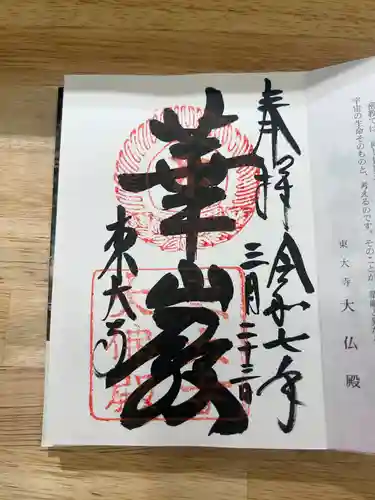 奉拝
令和七年
三月二十三日
華嚴
東大寺
宇宙の生命そのものと、考えるのです。そのことが
東大寺 大仏殿